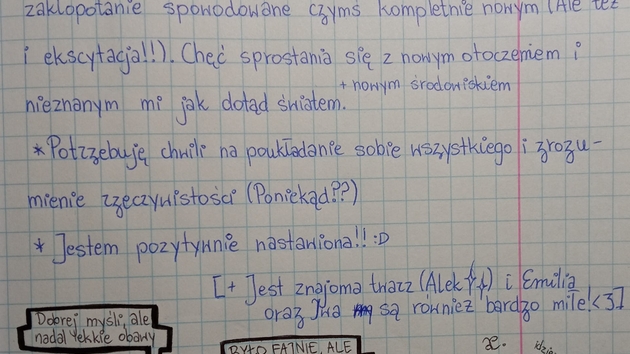 zakłopotanie spowodowane czymś kompletnie nowym (Ale też
i ekscytacja!!). Chęć sprostania się z nowym otoczeniem i
+ nowym środowiskiem
nieznanym mi jak dotąd światem.
* Potrzebuję chwili na poukładanie sobie wszystkiego i zrozu-
mienie rzeczywistości (Poniekąd??)
* Jestem pozytywnie nastawiona!! :D
[+ Jest znajoma twarz (Alek) i Emilia
oraz Iwa są również bardzo mile! <3]
Dobrej myśli, ale
nadal lekkie obawy
BYŁO FAJNIE, ALE